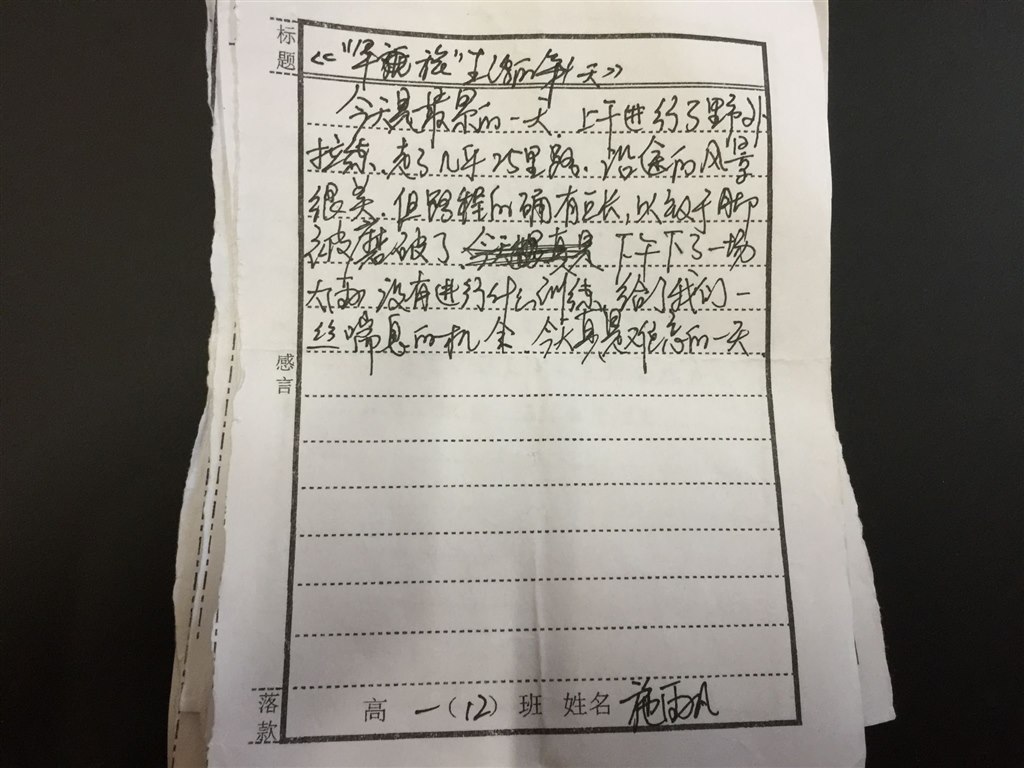 标题
《"军旅"生活的第六天》
今天是最累的一天,上午进行了野外
拉练,走了几乎25里路,沿途的风景
很美,但路程的确有点长,以致于脚
被磨破了 下午下了一场
大雨,没有进行什么训练,给了我们一
丝喘息的机会,今天真是难忘的一天
感言
落款
高一(12)班 姓名 施雨凡